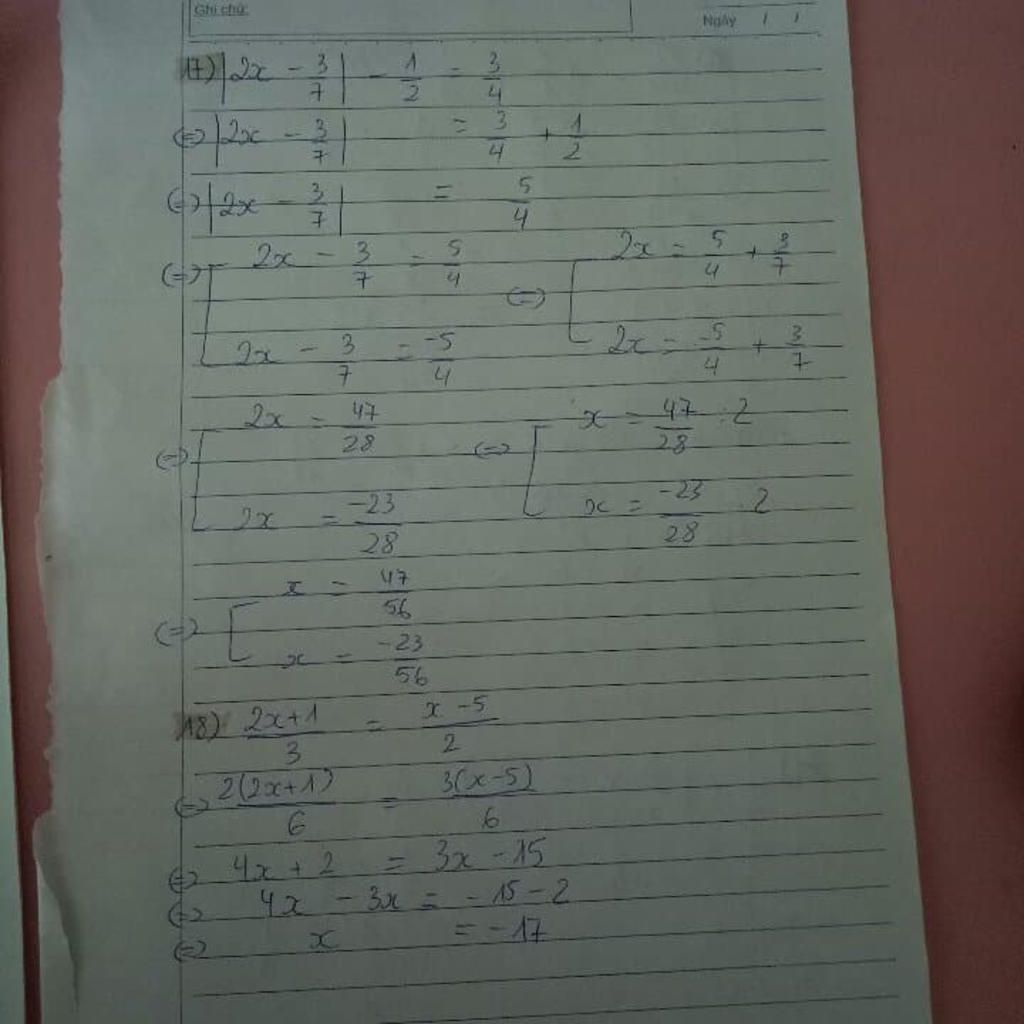 Ghi chú:
Ngày / /
17) |2x - 3/7| - 1/2 = 3/4
(=) |2x - 3/7| = 3/4 + 1/2
(=) |2x - 3/7| = 5/4
(=) [ 2x - 3/7 = 5/4 (=) [ 2x = 5/4 + 3/7
2x - 3/7 = -5/4 2x = -5/4 + 3/7
(=) [ 2x = 47/28 (=) [ x = 47/28 : 2
2x = -23/28 x = -23/28 : 2
(=) [ x = 47/56
x = -23/56
18) 2x+1/3 = x-5/2
(=) 2(2x+1)/6 = 3(x-5)/6
(=) 4x + 2 = 3x - 15
(=) 4x - 3x = -15 - 2
(=) x = -17